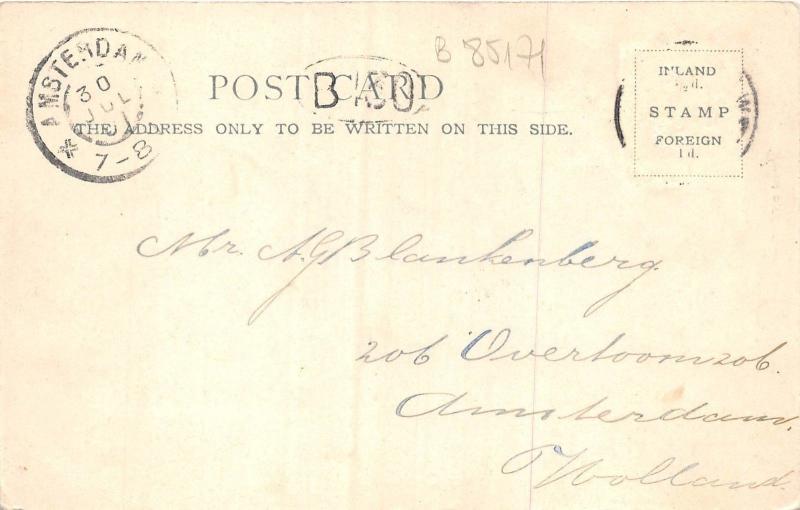 B 85171
AMSTERDAM
30
JUL
7-8
POST CARD
B
THE ADDRESS ONLY TO BE WRITTEN ON THIS SIDE.
INLAND
½d.
STAMP
FOREIGN
1d.
Mr. A.G Blankenberg.
206 Overtoom 206.
Amsterdam.
Holland.